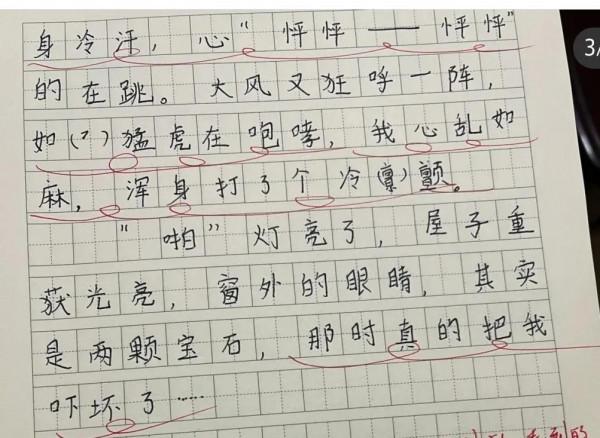 身冷汗，心“怦怦——怦怦”
的在跳。大风又狂呼一阵，
如(?)猛虎在咆哮，我心乱如
麻，浑身打了个冷(禀)颤。
“啪”灯亮了，屋子重
获光亮，窗外的眼睛，其实
是两颗宝石，那时真的把我
吓坏了……
3/